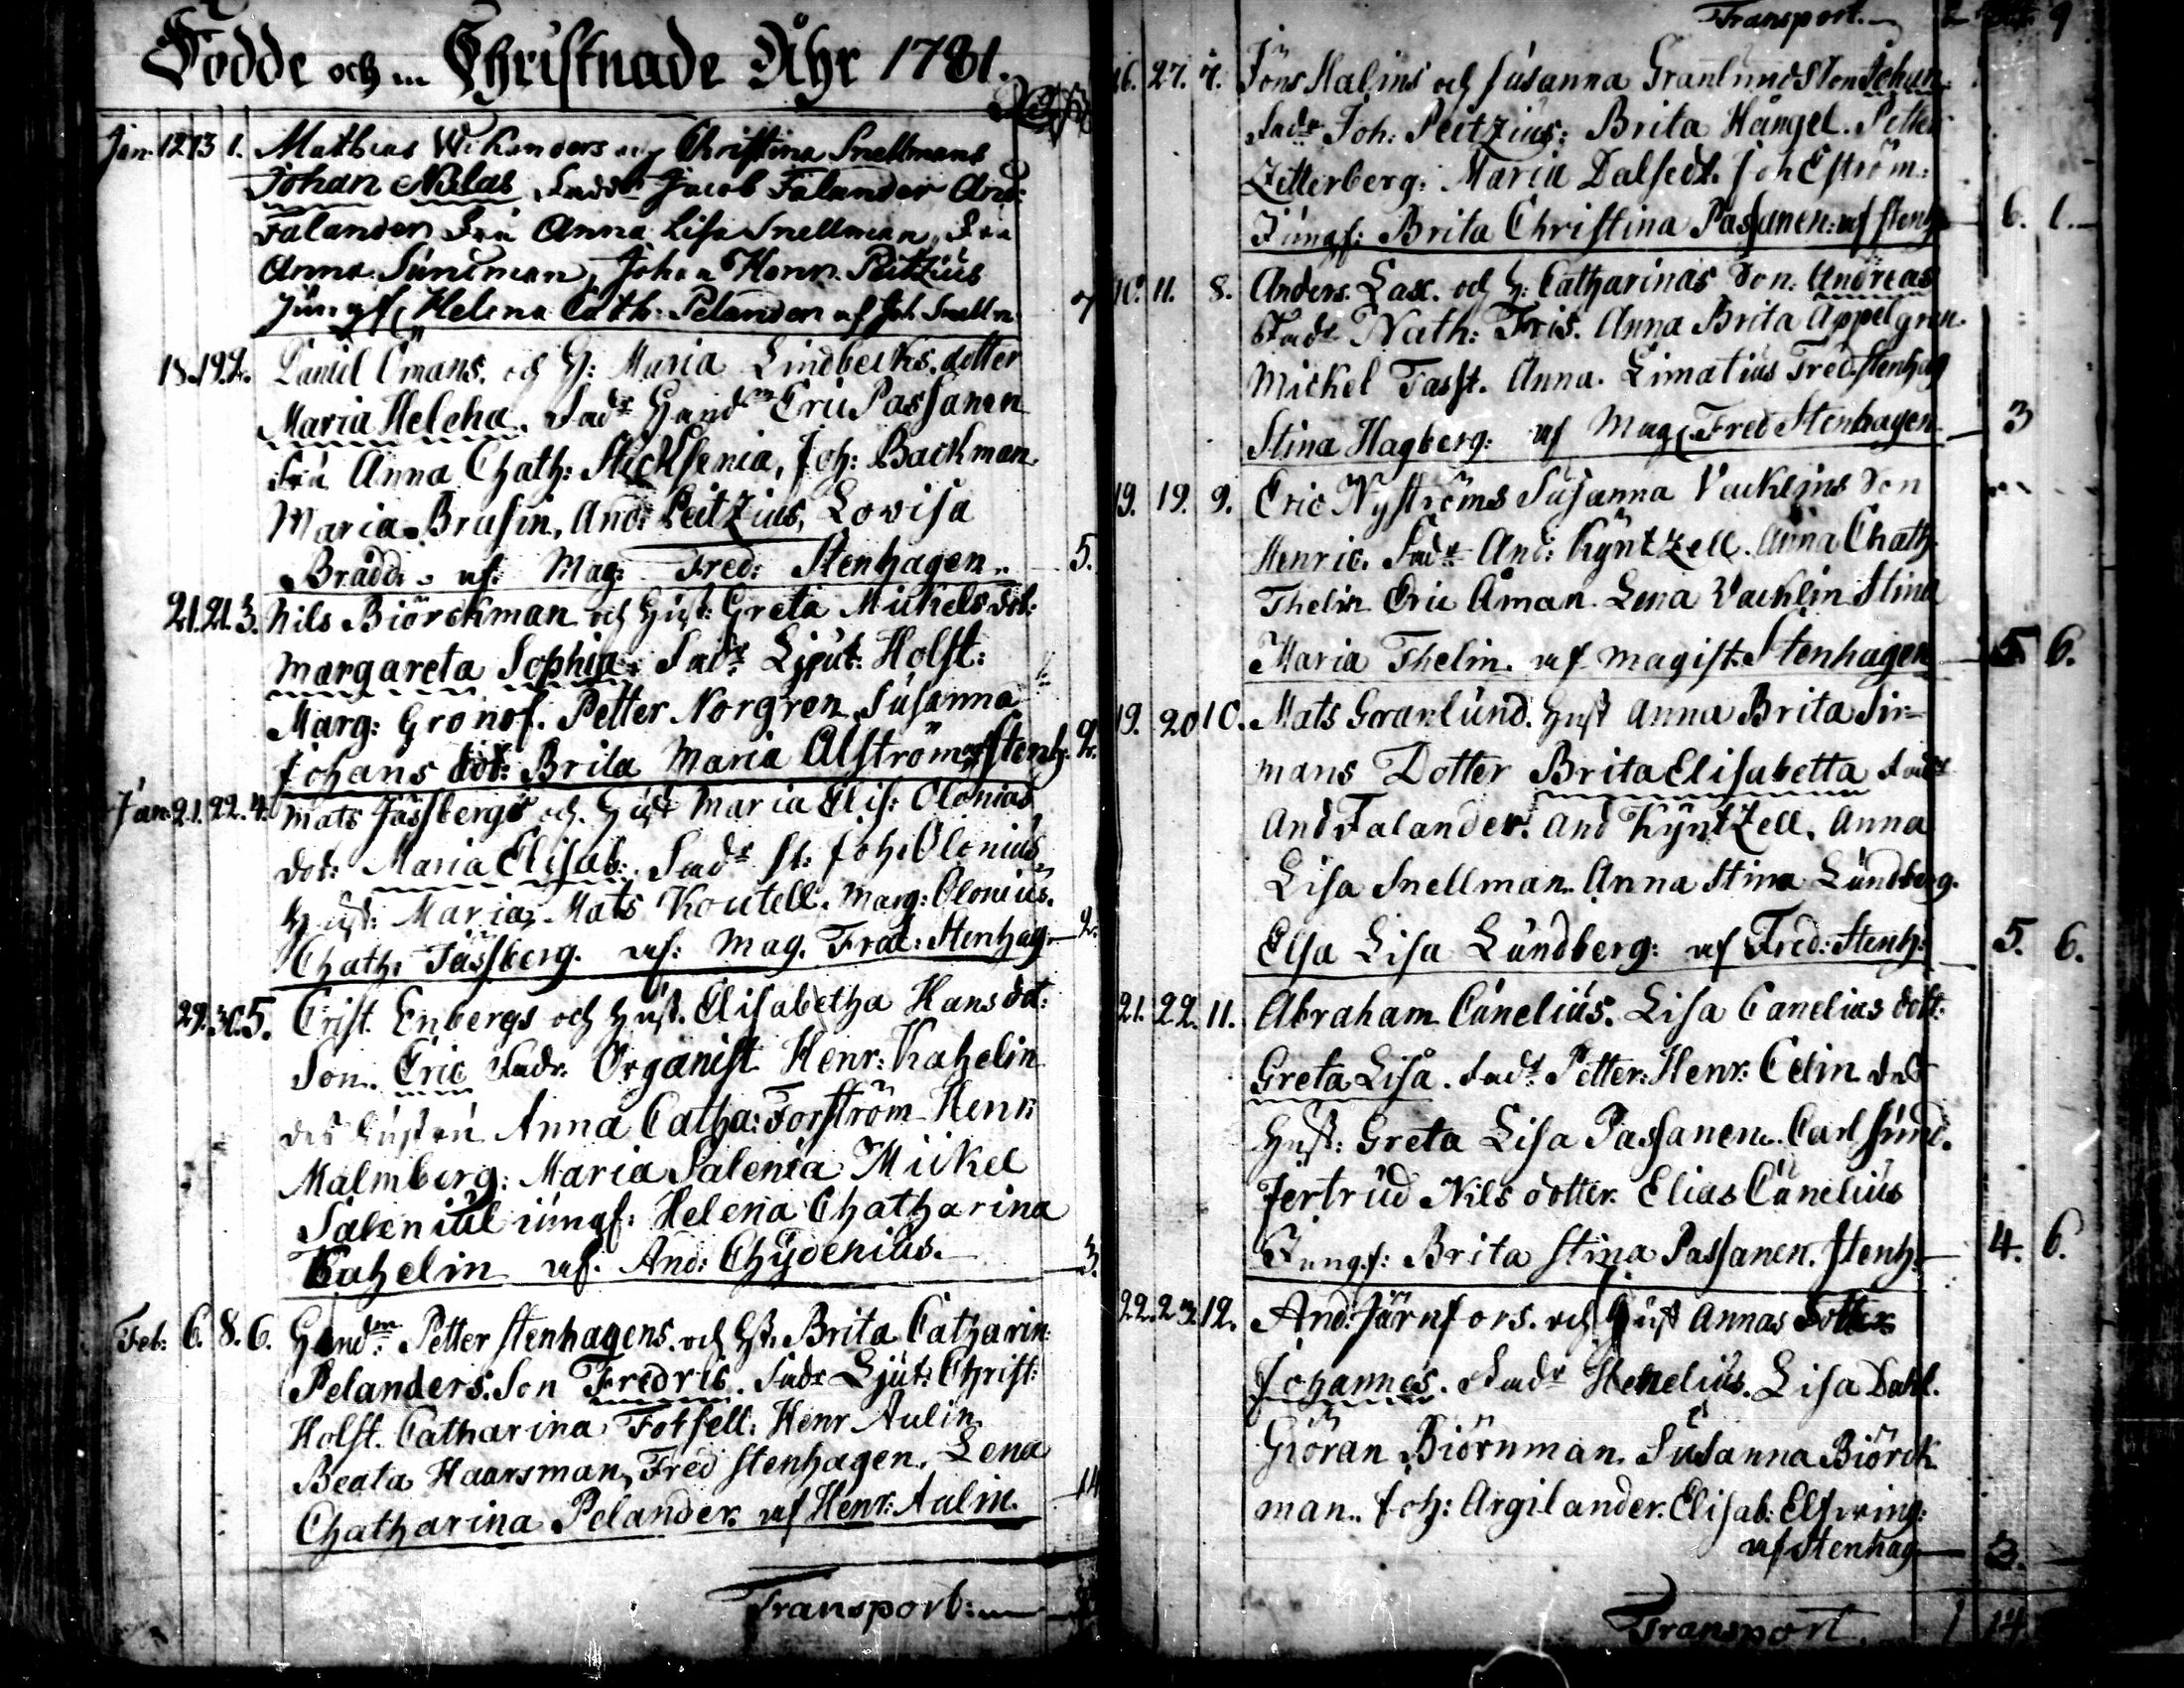 Födde och Christnade Åhr 1781.
Jan. 12 13 1. Mathias Wikanders och Christina Snellmans
Johan Niklas Fadd: Jacob Falander And:
Falander Fru Anna Lisa Snellman, Fru
Anna Sundman, Johan Henr. Peitzius
Jungf. Helena Cath: Pelander af Joh Snellm
18. 19. 2. Daniel Ömans, och H: Maria Lindbecks dotter
Maria Helena. Fadr Handm Eric Passanen
Fru Anna Chath: Stichsenia, Joh: Backman.
Maria Brusin, And: Peitzius, Lovisa
Brådd: af: Mag: Fred: Stenhagen. 5.
21. 21. 3. Nils Biörckman och Hust: Greta Mickels dot:
Margareta Sophia. Fadr Ljeut: Holst:
Marg: Gronof. Petter Norgren, Susanna
Johans dot: Brita Maria Alström af Stenh. 2.
Jan: 21. 22. 4. Mats Jässbergs och Hust Maria Elis: Olonias
dot: Maria Elisab: Fadr Joh: Olonius,
Hust: Maria, Mats Koutell. Marg: Olonius.
Chath: Jässberg. af: Mag. Fred: Stenhag. 2.
29. 30. 5. Crist. Enbergs och Hust. Elisabetha Hans dot:
Son. Eric Fadr. Organist Henr: Kahelin
des hustru Anna Catha: Forström Henr:
Malmberg: Maria Salenia Mickel
Salenius jungf: Helena Chatharina
Kahelin af. And: Chydenius. 3.
Feb: 6. 8. 6. Handm Petter Stenhagens. och Hst. Brita Catharin:
Pelanders. Son Fredric. Fadr Ljut: Christ:
Holst. Catharina Forsell: Henr Aulin
Beata Haarsman, Fred Stenhagen, Lena
Chatharina Pelander. af Henr: Aulin. 14
Transport:
Transport. 9
16. 27. 7. Jöns Malins och Susanna Granlunds Son Johan
Fadr Joh: Peitzius: Brita Hångel. Petter
Zetterberg: Maria Dalstedt. Joh Eström:
Jungf: Brita Christina Passanen: af Stenh 6. 1.
10. 11. 8. Anders. Lax. och H: Catharinas Son. Andreas
Fadr Nath: Fris. Anna Brita Appelgren.
Mickel Fasst. Anna. Limatius Fred Stenhag
Stina Hagberg: af Mag. Fred Stenhagen. 3
19. 19. 9. Eric Nyströms Susanna Vacklins Son
Henric. Fadr And: Kyntzell. Anna Chath.
Thelin Eric Åman. Lena Vacklin Stina
Maria Thelin. af Magist. Stenhagen 5. 6.
19. 20 10. Mats Granlund. Hust Anna Brita Sir-
mans Dotter Brita Elisabetta Fadr
And Falander. And Kyntzell. Anna
Lisa Snellman. Anna Stina Lundberg.
Elsa Lisa Lundberg: af Fred: Stenh: 5. 6.
21. 22. 11. Abraham Canelius. Lisa Canelias dott:
Greta Lisa. Fadr Petter: Henr: Celin
Hust: Greta Lisa Passanen. Carl Sund.
Jertrud Nils dotter. Elias Canelius
Jungf: Brita Stina Passanen. Stenh. 4. 6.
22. 23. 12. And: Järnfors. och Hust Annas
Johannes. Fadr Stenelius. Lisa Dahl.
Giöran Biörnman. Susanna Biörck
man.. Joh: Argilander. Elisab: Elfving:
af Stenhag 3.
Transport 14